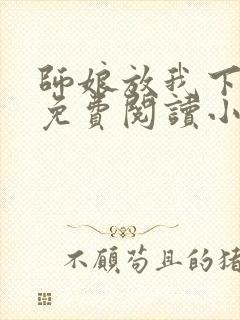 師娘放我下
免費閱讀小
不顧苟且的猪